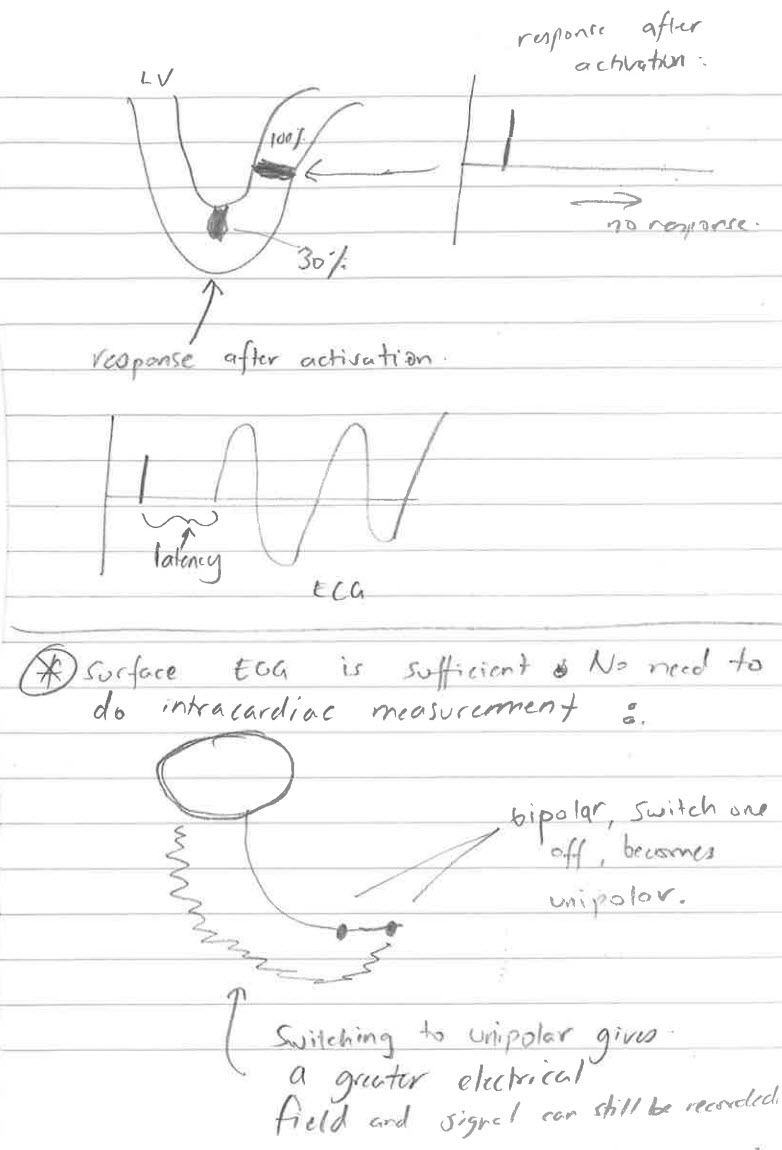 response after
activation:
LV
100%
no response.
30%
response after activation.
latency
ECG
* Surface ECG is sufficient. No need to
do intracardiac measurement :.
bipolar, switch one
off, becomes
unipolar.
Switching to unipolar gives
a greater electrical
field and signal can still be recorded.